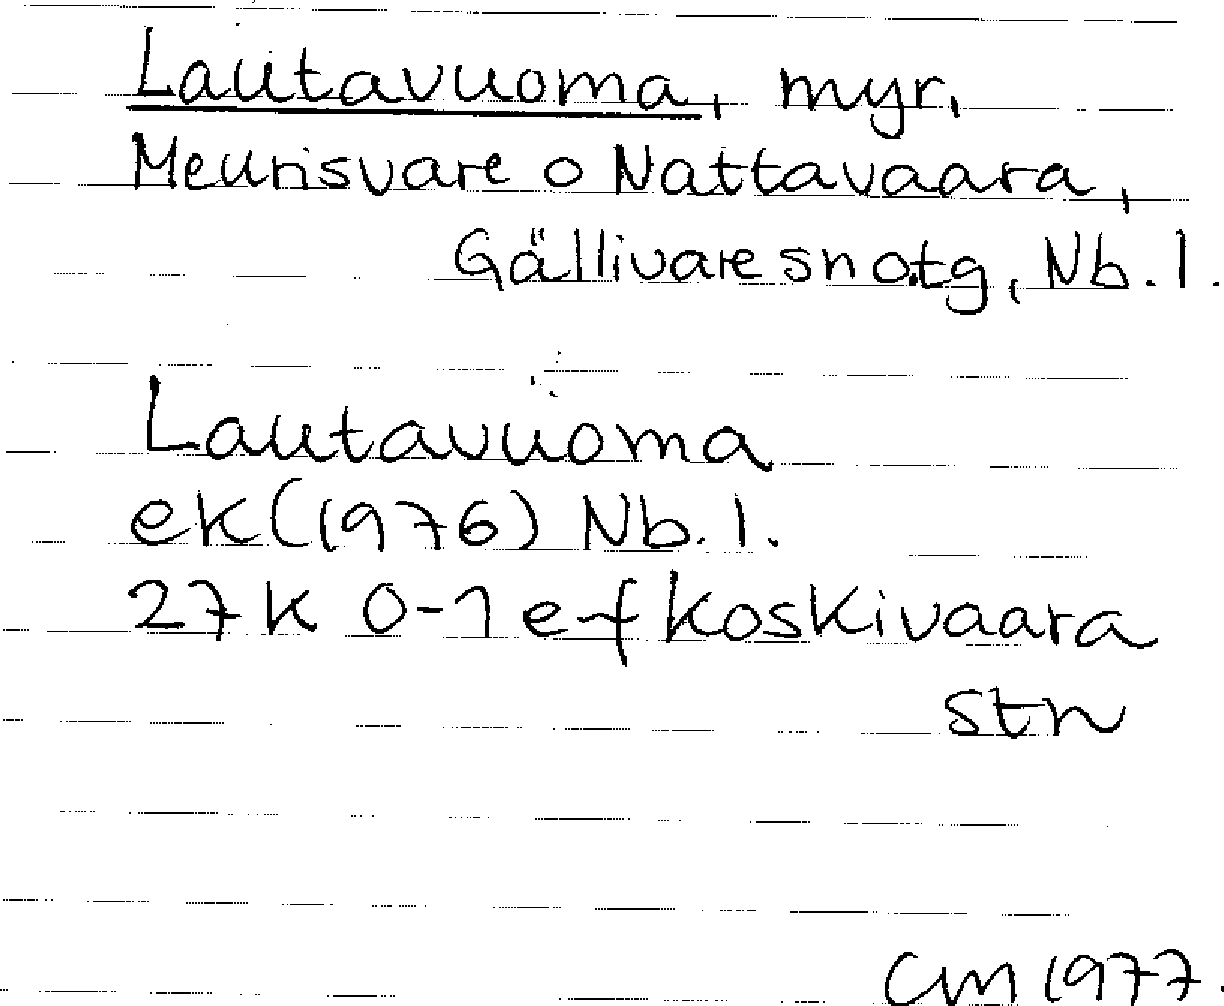 Lautavuoma, myr,
Meurisvare o Nattavaara,
Gällivare sn o.tg, Nb. l.
Lautavuoma
ek (1976) Nb. l.
27 K 0-1 e-f Koskivaara
stn
CM 1977.